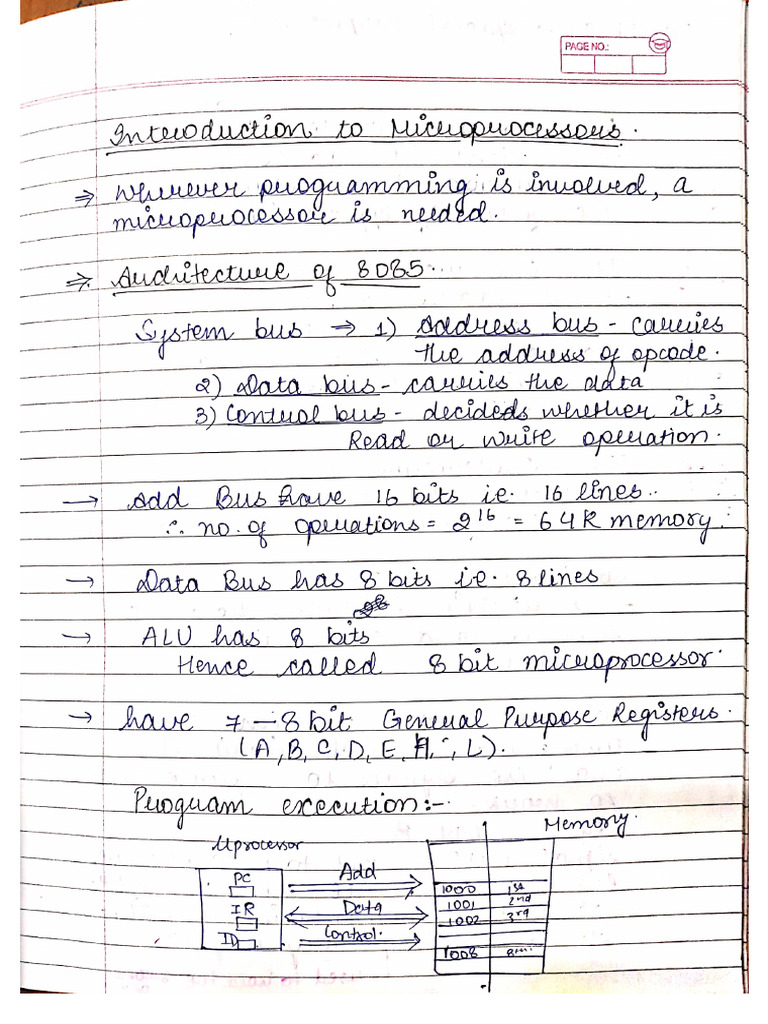 PAGE NO.:
Introduction to Microprocessors.
⇒ Wherever programming is involved, a
microprocessor is needed.
⇒ Architecture of 8085.
System bus ⇒ 1) Address bus - carries
the address of opcode.
2) Data bus - carries the data
3) Control bus - decideds whether it is
Read or write operation.
→ Add Bus have 16 bits ie. 16 lines.
∴ no. of operations = 2^16 = 64K memory.
→ Data Bus has 8 bits i.e. 8 lines
→ ALU has 8 bits
Hence called 8 bit microprocessor.
→ have 7 - 8 bit General Purpose Registers.
(A, B, C, D, E, H, L).
Program execution:-
Memory.
Uprocessor
PC
Add
1000 1st
IR
Data
1001 2nd
1002 3rd
ID
Control.
1008